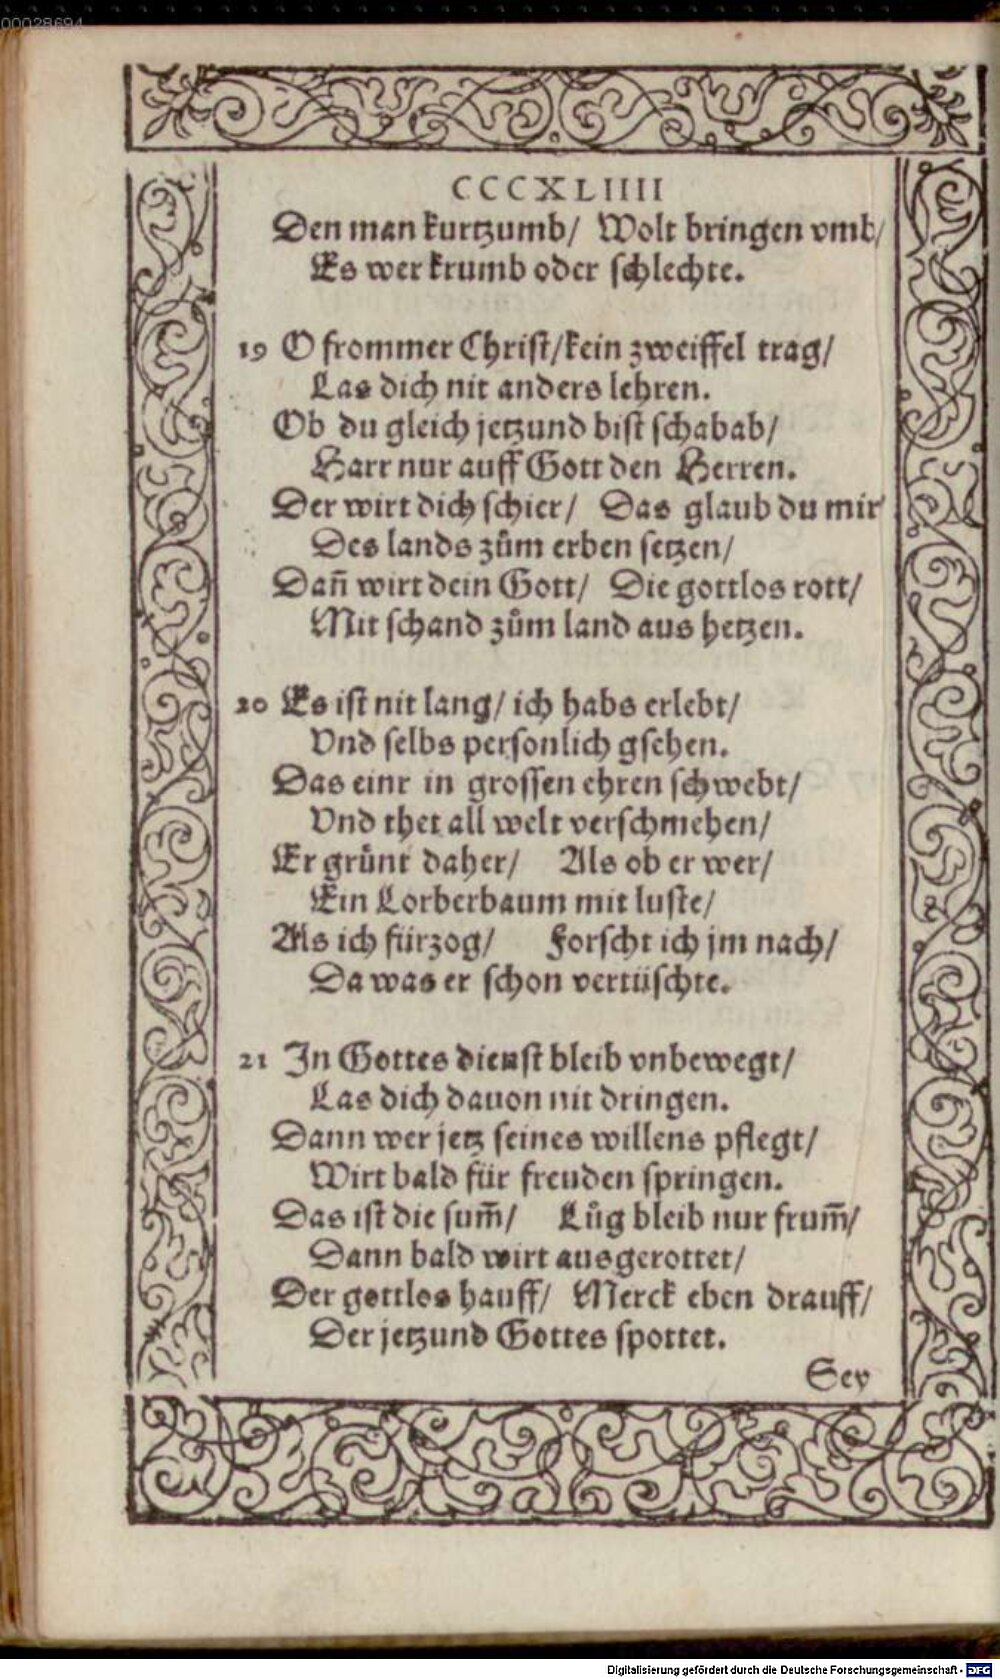 00028694
CCCXLIIII
Den man kurtzumb/ Wolt bringen vmb/
Es wer krumb oder schlechte.
19 O frommer Christ/kein zweiffel trag/
Las dich nit anders lehren.
Ob du gleich jetzund bist schabab/
Harr nur auff Gott den Herren.
Der wirt dich schier/ Das glaub du mir
Des lands zům erben setzen/
Dañ wirt dein Gott/ Die gottlos rott/
Mit schand zům land aus hetzen.
20 Es ist nit lang/ ich habs erlebt/
Vnd selbs personlich gsehen.
Das einr in grossen ehren schwebt/
Vnd thet all welt verschmehen/
Er grůnt daher/ Als ob er wer/
Ein Lorberbaum mit luste/
Als ich fürzog/ Forscht ich jm nach/
Da was er schon vertüschte.
21 In Gottes dienst bleib vnbewegt/
Las dich dauon nit dringen.
Dann wer jetz seines willens pflegt/
Wirt bald für freuden springen.
Das ist die sum̃/ Lůg bleib nur frum̃/
Dann bald wirt ausgerottet/
Der gottlos hauff/ Merck eben drauff/
Der jetzund Gottes spottet.
Sey
Digitalisierung gefördert durch die Deutsche Forschungsgemeinschaft - DFG